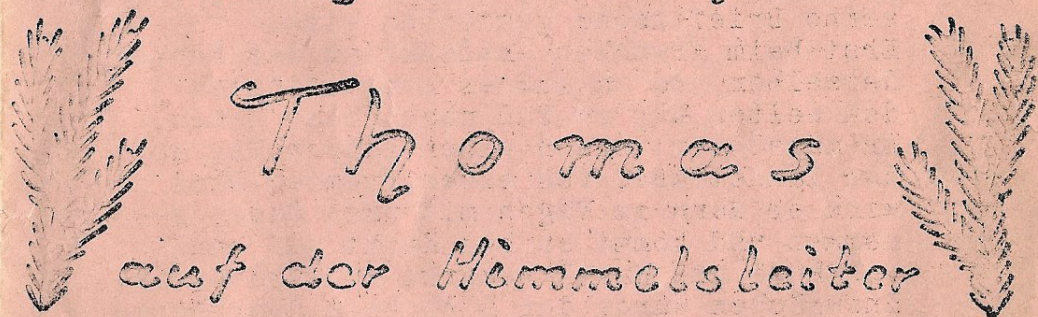 Thomas
auf der Himmelsleiter